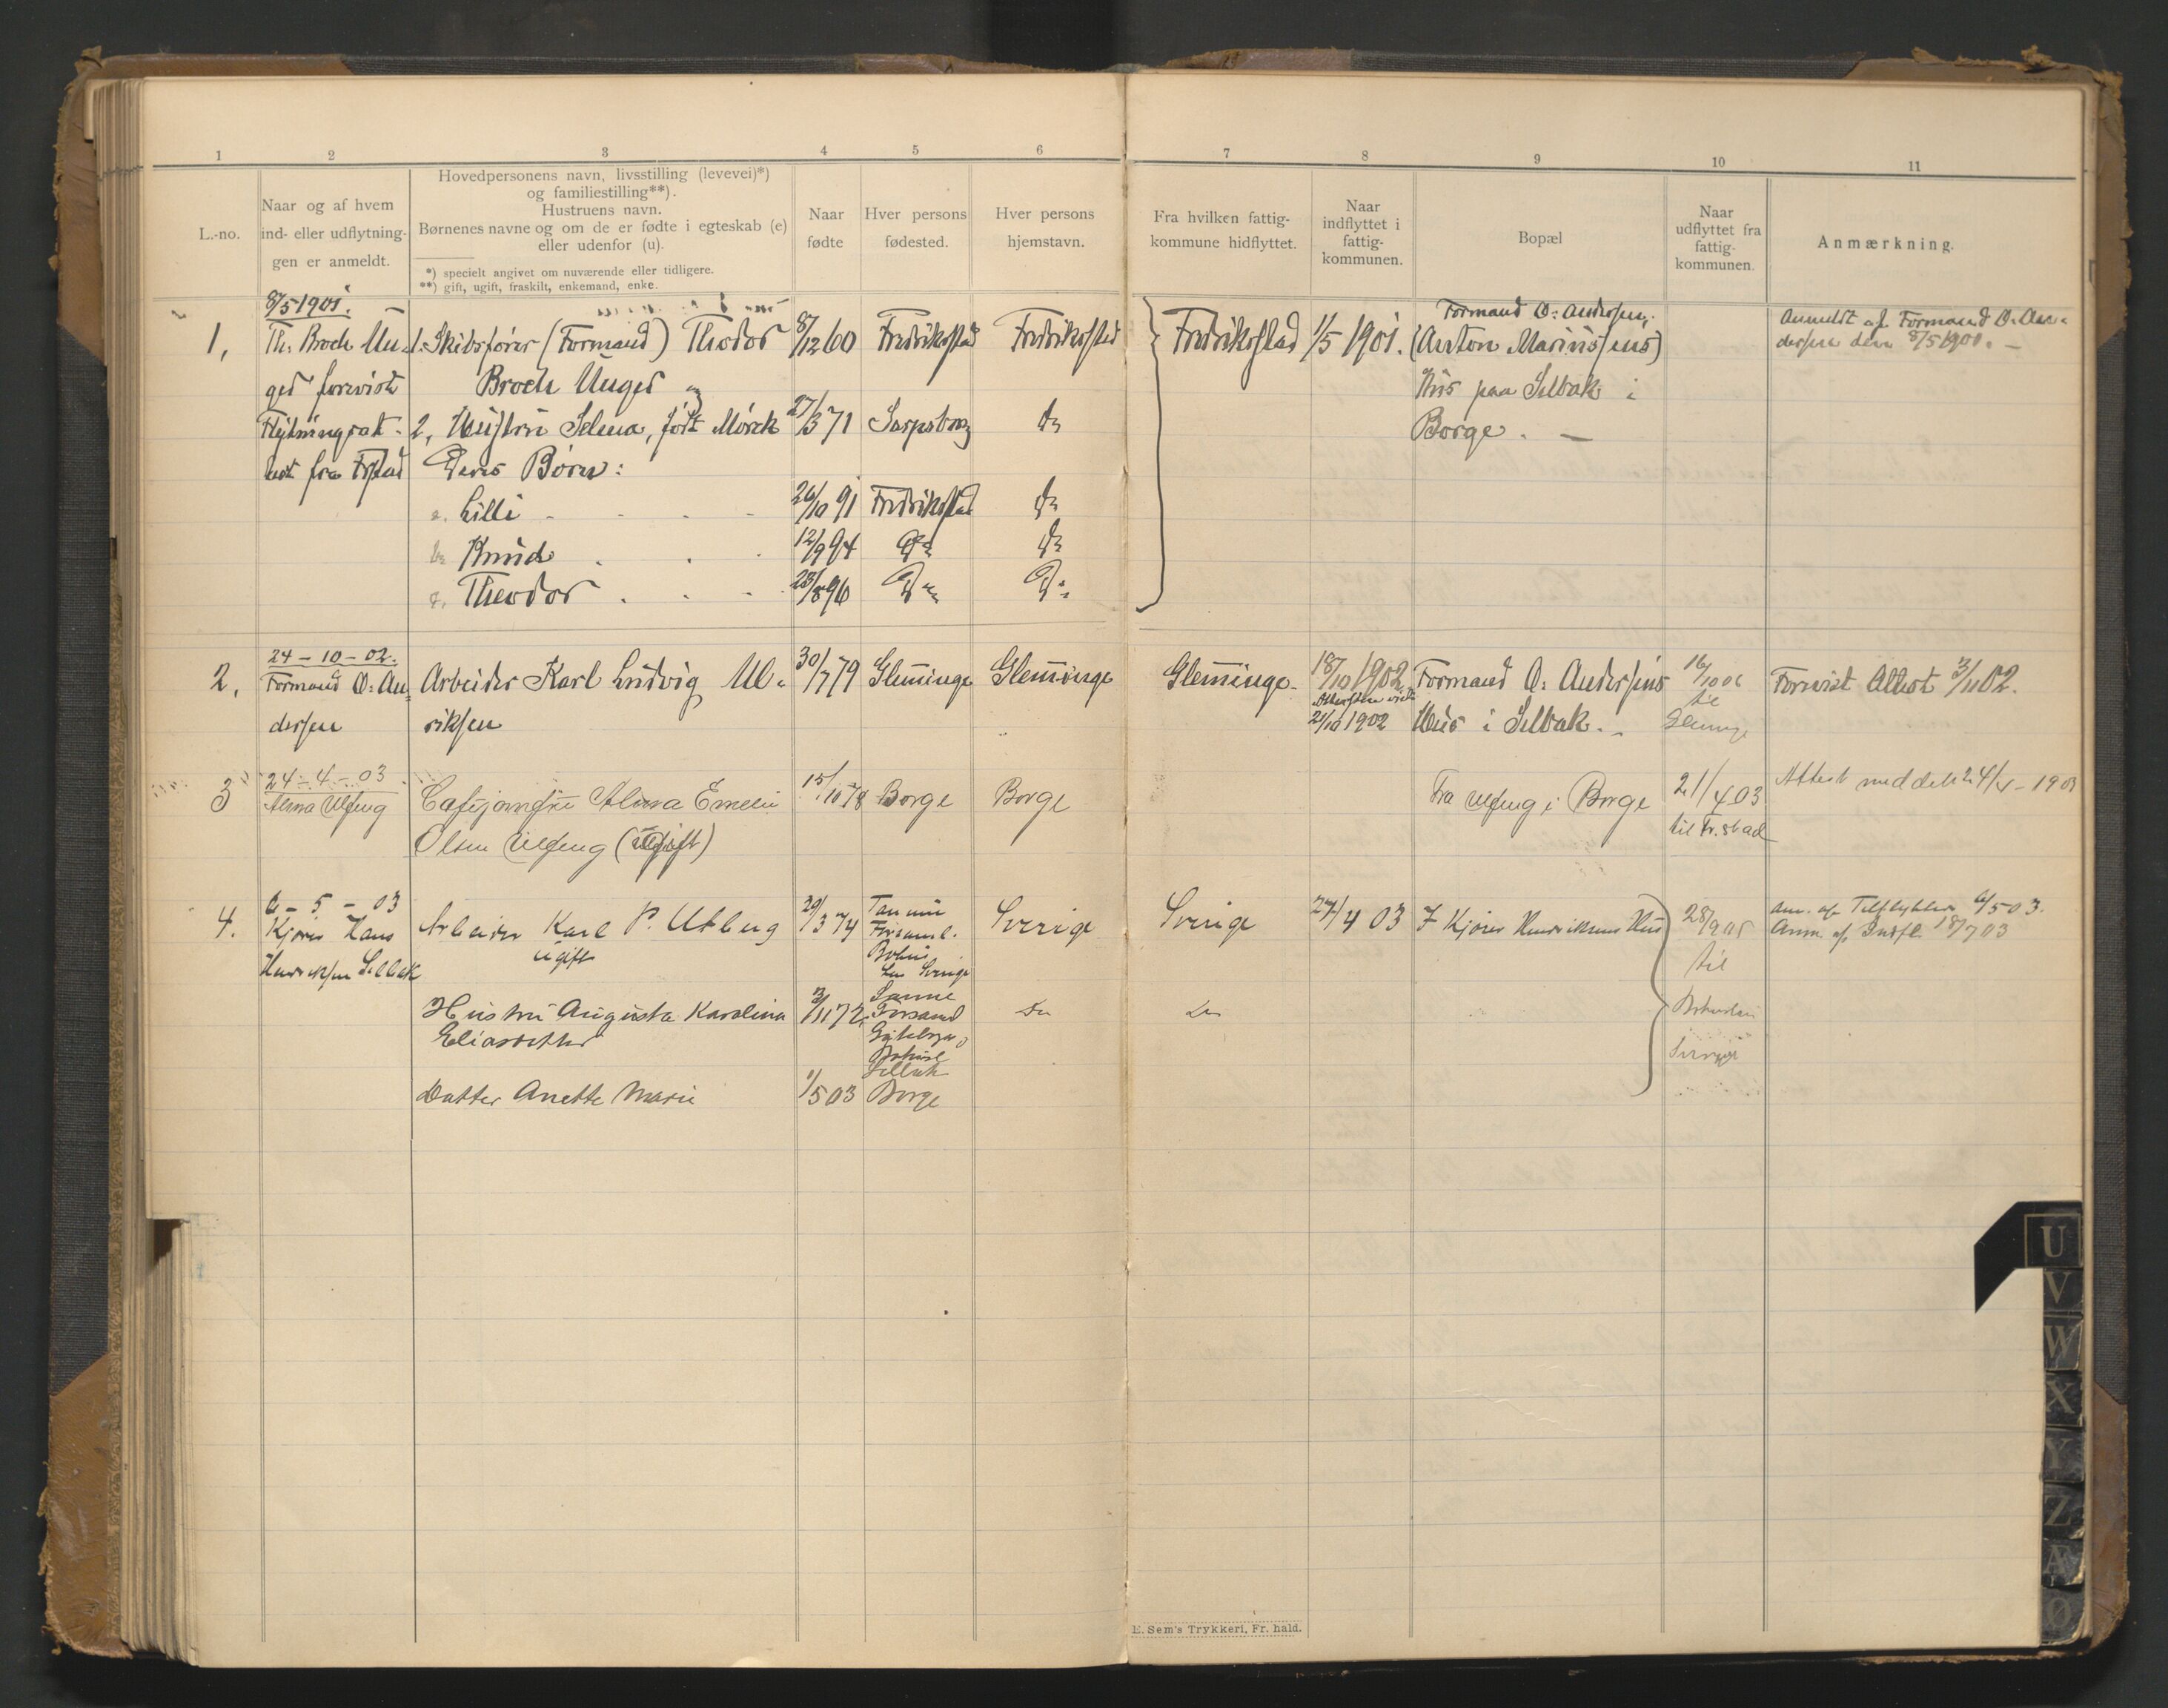 1 2 3 4 5 6 7 8 9 10 11
L.-no.
Naar og af hvem
ind- eller udflytnin-
gen er anmeldt.
Hovedpersonens navn, livsstilling (levevei)*)
og familiestilling**).
Hustruens navn.
Børnenes navne og om de er fødte i egteskab (e)
eller udenfor (u).
*) specielt angivet om nuværende eller tidligere.
**) gift, ugift, fraskilt, enkemand, enke.
Naar
fødte
Hver persons
fødested.
Hver persons
hjemstavn.
Fra hvilken fattig-
kommune hidflyttet.
Naar
indflyttet i
fattig-
kommunen.
Bopæl
Naar
udflyttet fra
fattig-
kommunen.
Anmærkning.
1,
8/5 1901.
Th. Broch Un-
ger forevist
Flytningsat-
test fra Frstad
1. Skibsfører (Formand) Theodor
Broch Unger
8/12 60 Fredrikstad Fredrikstad
2, Hustru Selma, født Mørck
27/3 71 Sarpsborg Do
Deres Børn:
a. Lilli 26/10 91 Fredrikstad Do
b. Knud 12/9 94 Do Do
c. Theodor 28/8 96 Do Do
Fredrikstad 1/5 1901.
Formand O. Andersen,
(Anton Mariussens)
Hus paa Selbak i
Borge. —
Anmeldt af Formand O. An-
dersen den 8/5 1901. —
2,
24-10-02.
Formand O. An-
dersen
Arbeider Karl Ludvig Ul-
riksen
30/7 79 Glemminge Glemminge
Glemminge
18/10 1902
21/10 1902
Formand O. Andersens
Hus i Selbak.
16/10 06
til
Glemminge
Forevist Attest 3/11 02.
3
24-4-03
Alma Ulfeng
Cafejomfru Alma Emelie
Olsen Ulfeng (Ugift)
15/10 78 Borge Borge
Fra Ulfeng i Borge
21/4 03
til Fr.stad
Attest meddelt 24/4-1903
4.
6-5-03
Kjører Hans
Henriksen Selbak
Arbeider Karl P. Utberg
ugift
29/3 74
Tanum
Forsaml.
Bohus
Len Sverige
Sverige
Sverige
27/4 03
F Kjører Henriksens Hus
28/9 05
til
Bohuslen
Sverige
Anm. af Tilflytter 6/5 03.
Anm. af Indfl. 18/7 03
Hustru Augusta Karolina
Eliasdotter
3/11 72
Sanne
Forsaml
Göteborg
Bohusl
Do Do
Datter Anette Marie
1/5 03
Selbak
Borge
E. Sem's Trykkeri, Fr.hald.
U
V
W
X
Y
Z
Æ
Ø